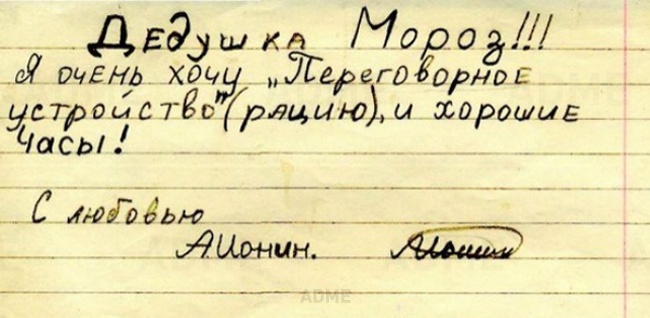 Дедушка Мороз!!!
Я очень хочу „Переговорное
устройство" (рацию), и хорошие
часы!
С любовью
А.Ионин.
ADME